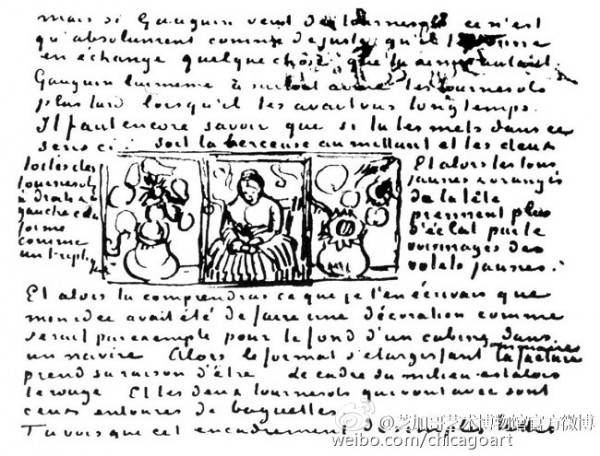 mais si Gauguin veut des tournesols ce n'est
qu'absolument comme de juste qu'il te donne
en échange quelque chose que tu aimes autant.
Gauguin lui même a surtout aimé les tournesols
plus tard lorsqu'il les avait vus longtemps.
Il faut encore savoir que si tu les mets dans ce
sens ci soit la berceuse au milieu et les deux
toiles des
tournesols
à droite et
gauche cela
forme
comme
un triptyque
Et alors les tons
jaunes & orangés
de la tête
prennent plus
d'éclat par le
voisinages des
volets jaunes.
Et alors tu comprendras ce que je t'en écrivais que
mon idée avait été de faire une décoration comme
serait par exemple pour le fond d'un cabine dans
un navire Alors le format s'élargissant la facture
sommaire
prend sa raison d'être Le cadre du milieu est alors
le rouge Et les deux tournesols qui vont avec sont
ceux entourés de baguettes
Tu vois que cet encadrement de simples lattes
@芝加哥艺术博物馆官方微博
weibo.com/chicagoart